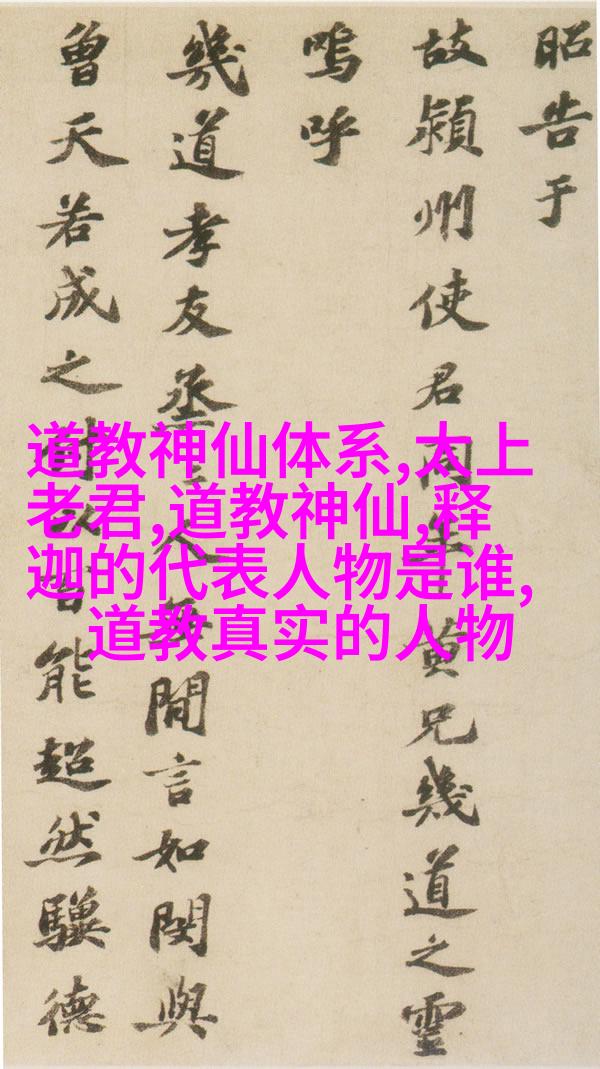 昭告于
故潁州使君同年黄兄幾道之靈
嗚呼
幾道孝友烝〻人無間言如閔與
曾天若成之付以百能超然驥德
道教神仙体系,太上
老君,道教神仙,释
迦的代表人物是谁,
道教真实的人物